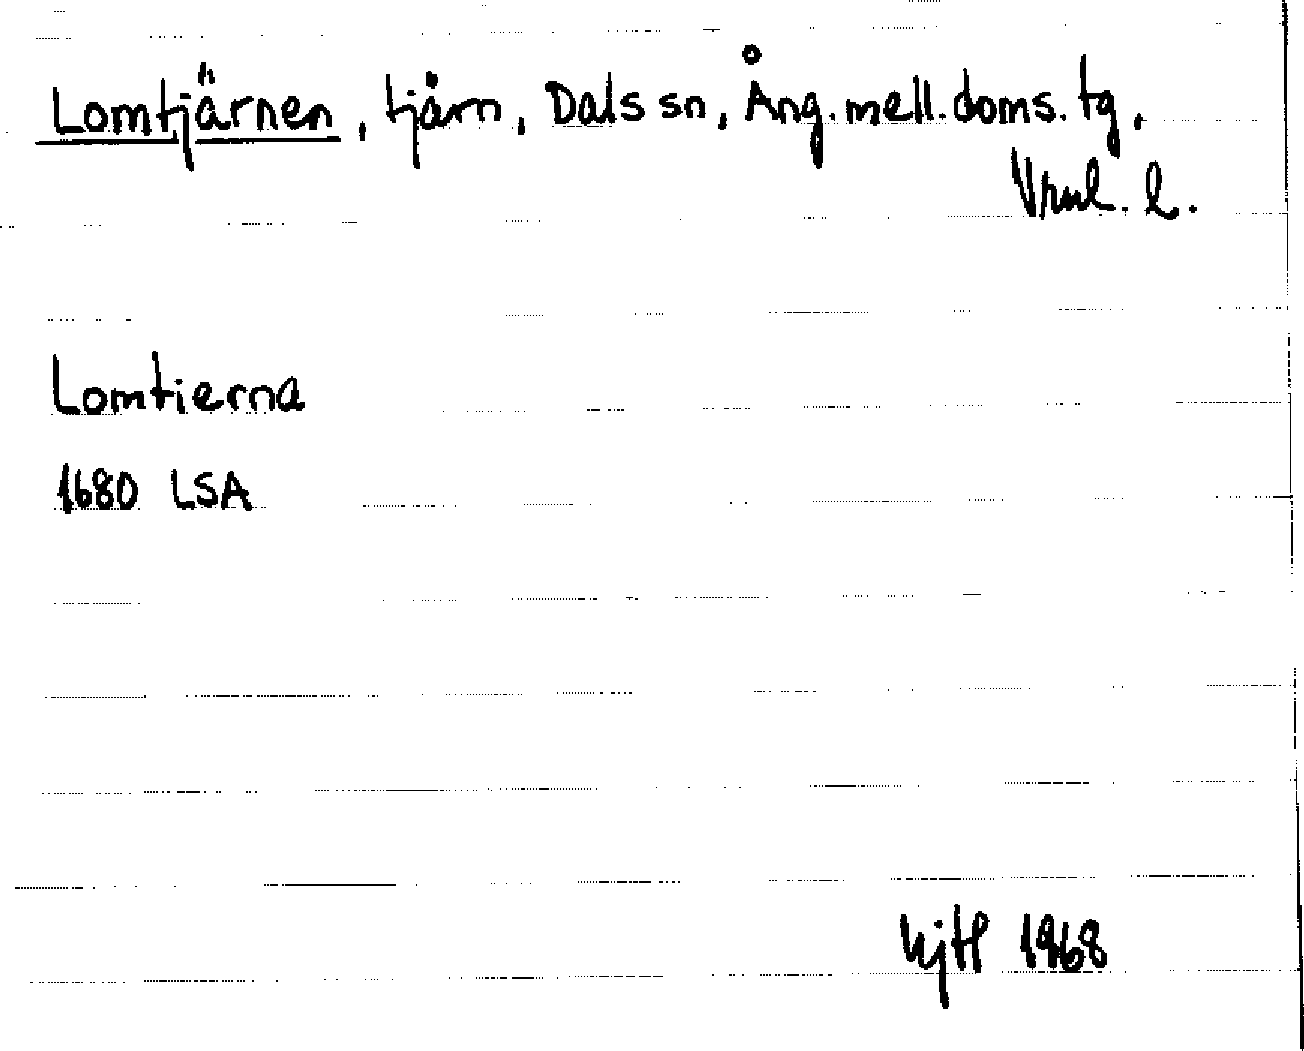 Lomtjärnen, tjärn, Dals sn, Ång. mell. doms. tg.
Vrml. l.
Lomtierna
1680 LSA
1968